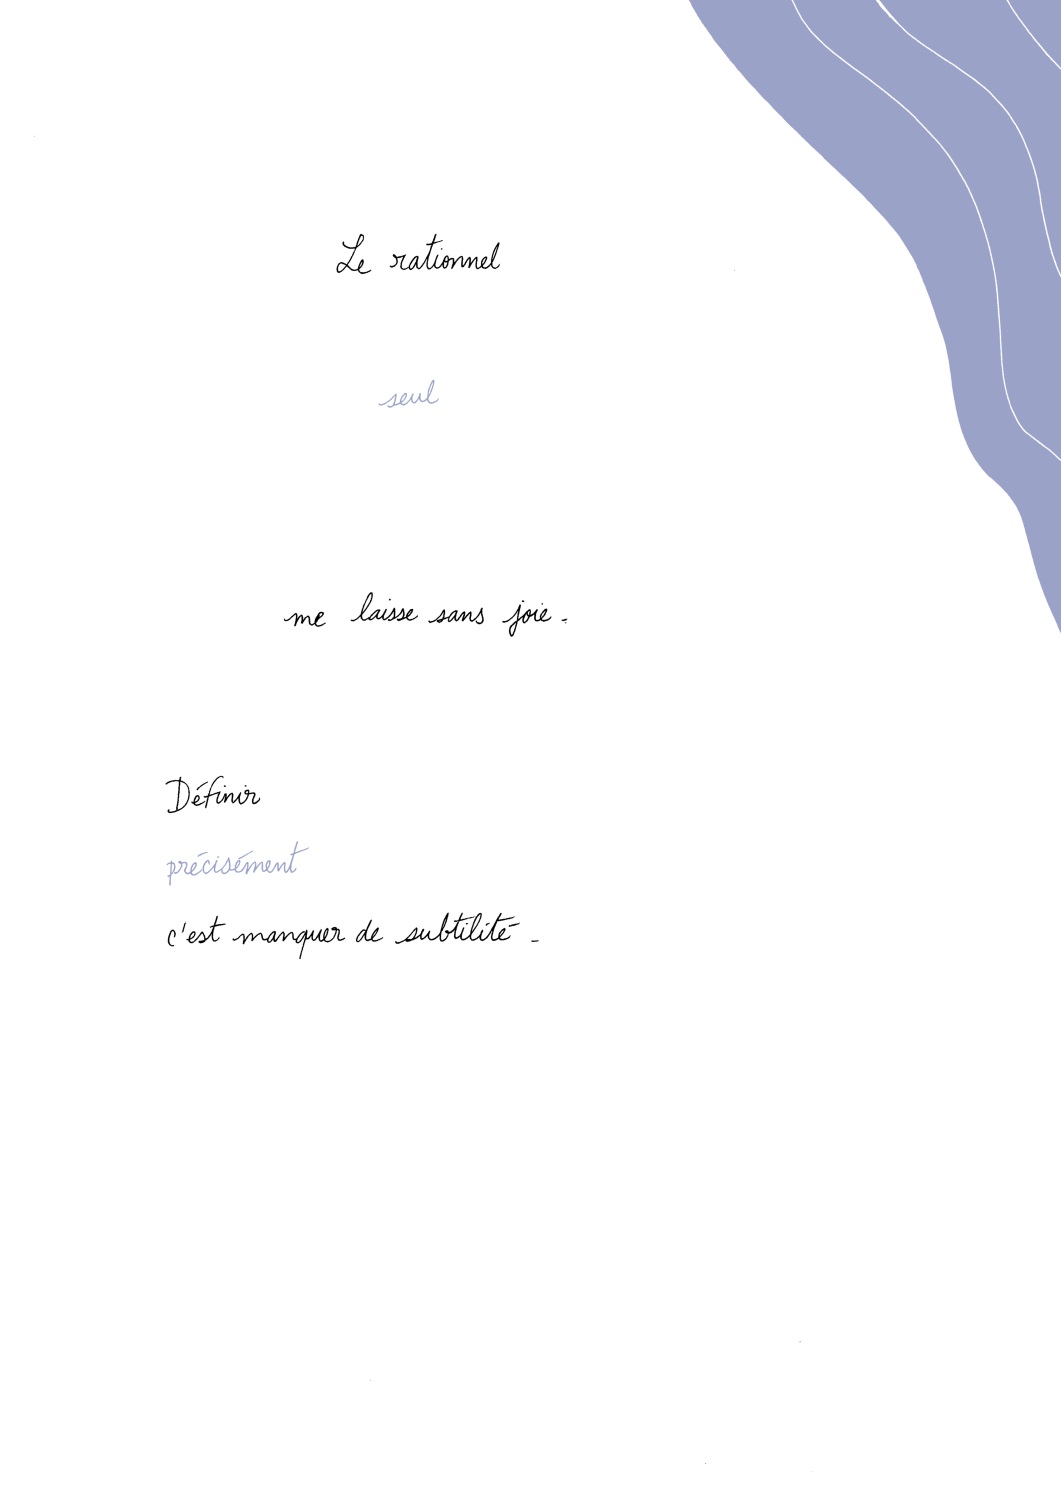 Le rationnel
seul
me laisse sans joie.
Définir
précisément
c'est manquer de subtilité.